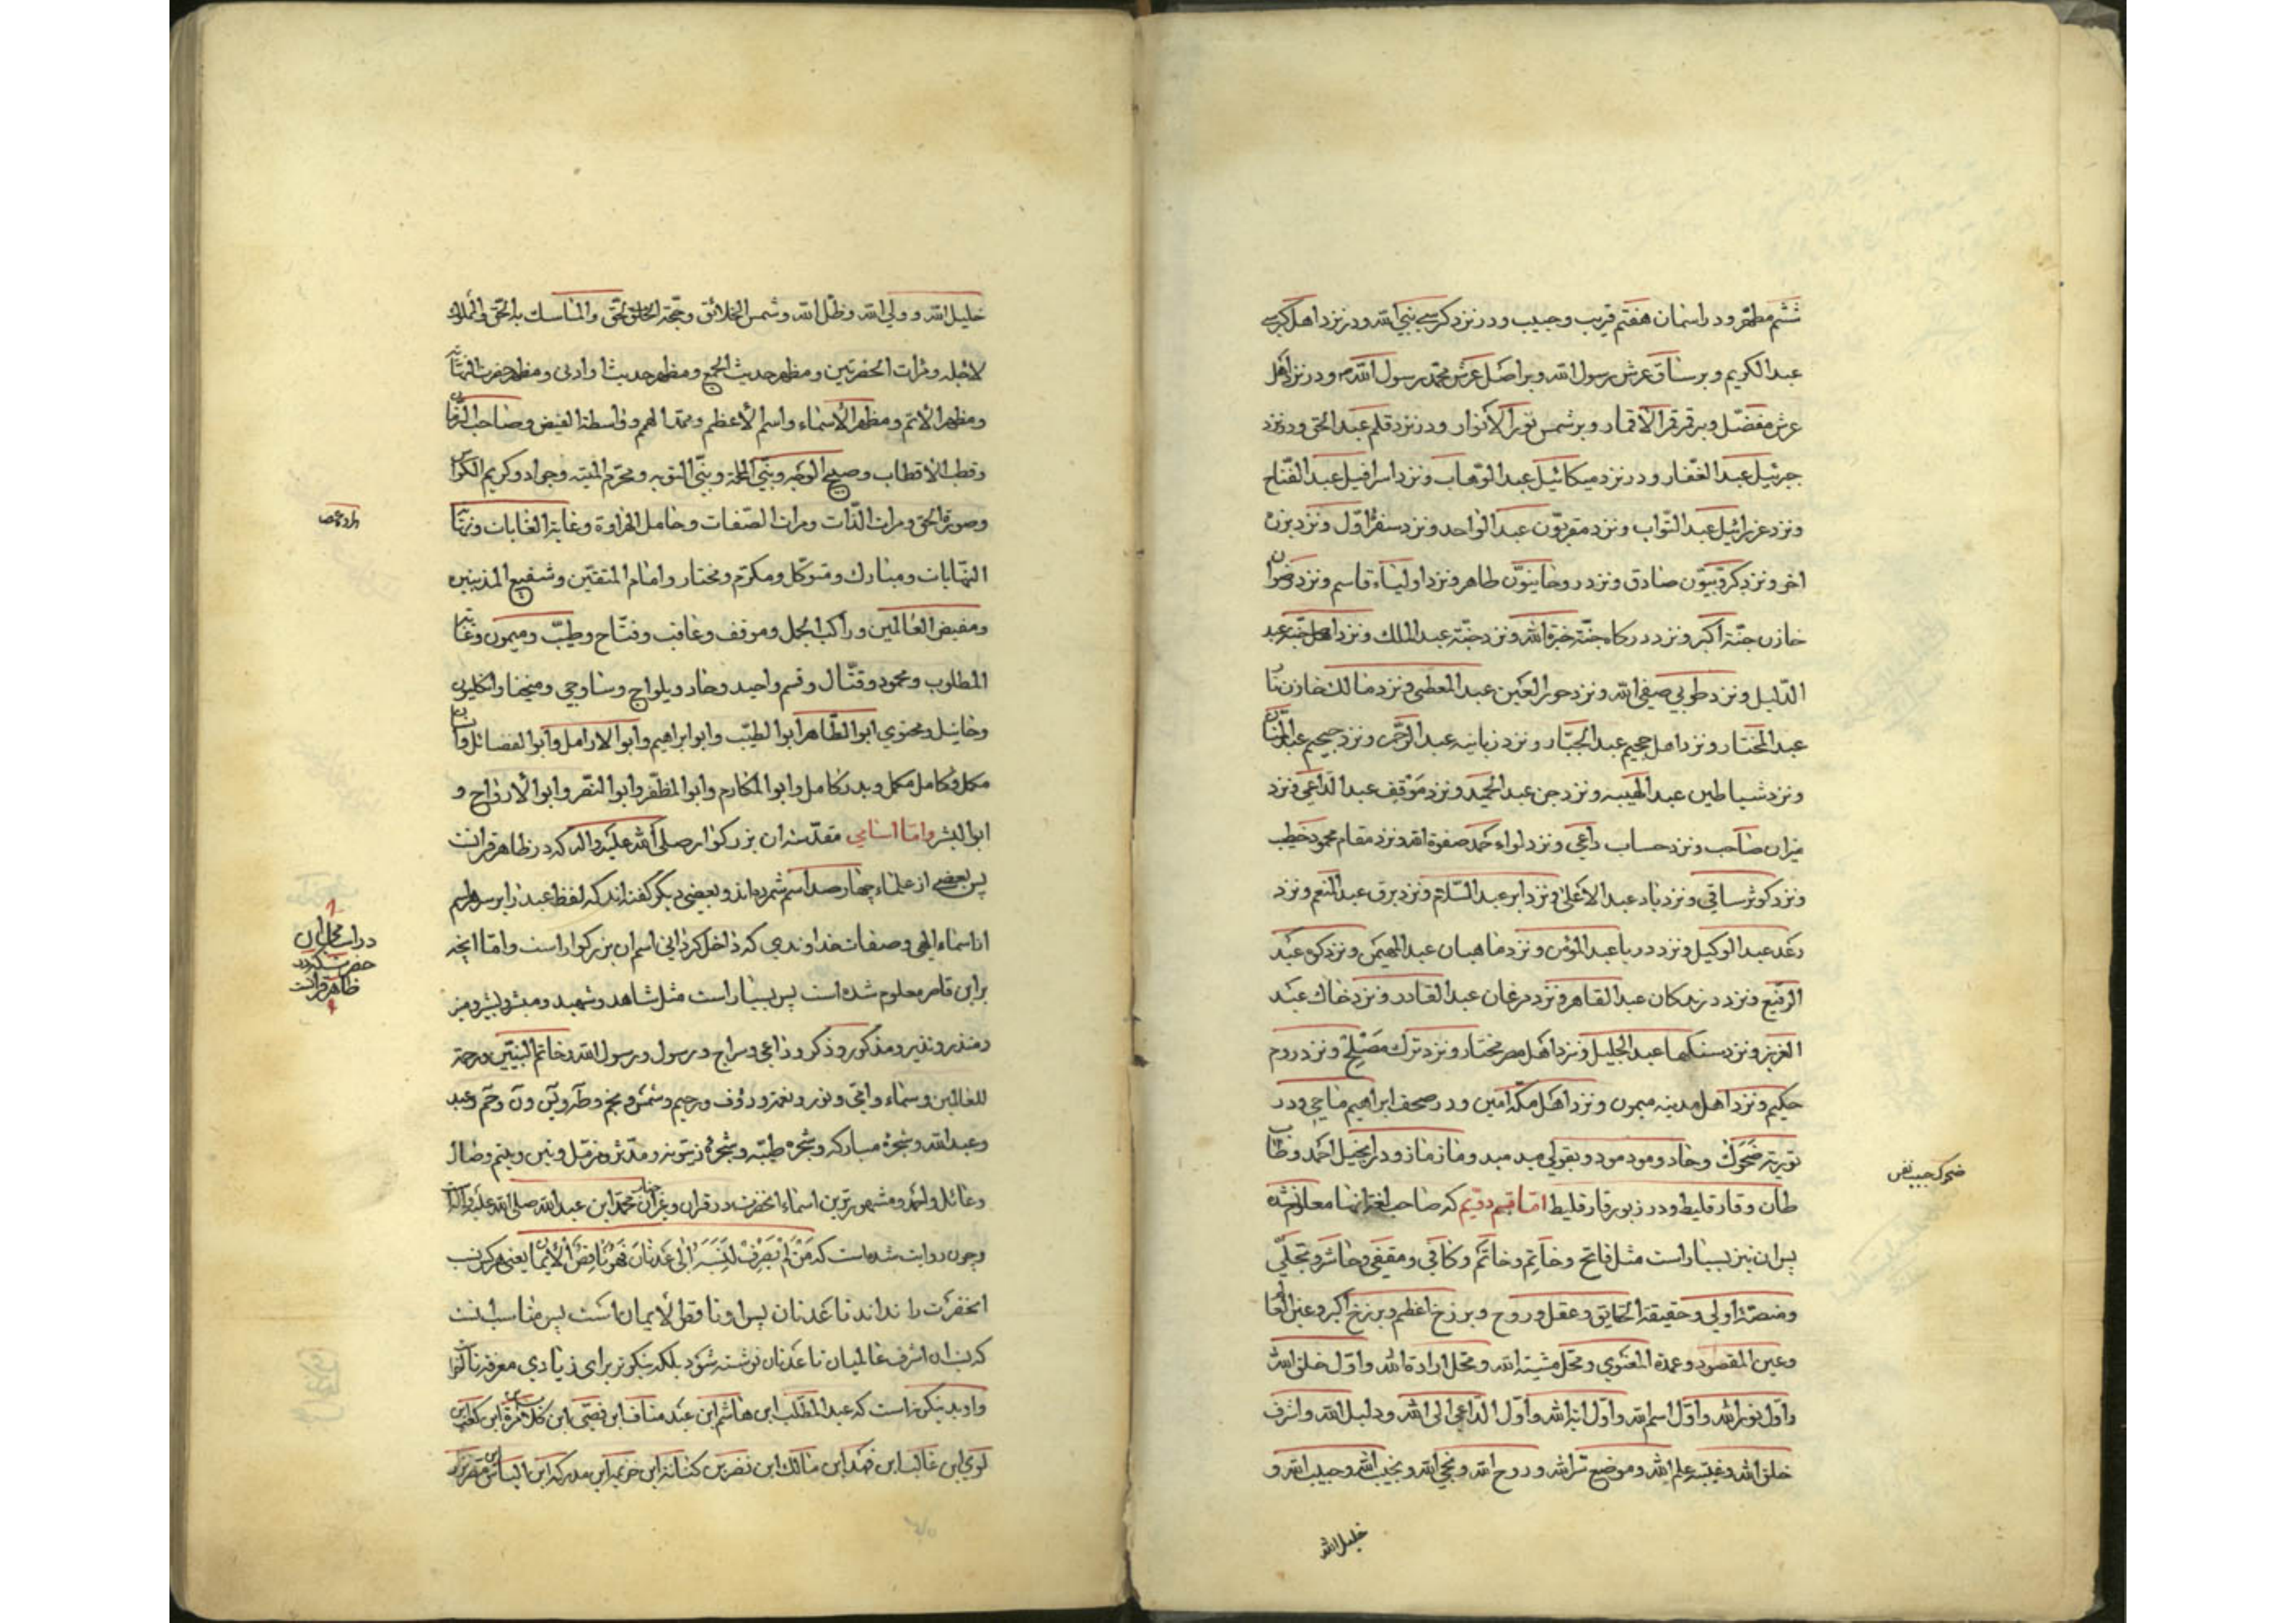 ششم مطهر و در اسمان هفتم قریب و حبیب و در نزد کرسی نبی الله و در نزد اهل کرسی
عبد الکریم و بر ساق عرش رسول الله و بر اصل عرش محمد رسول الله و در نزد اهل
عرش مفضّل و بر قمر قمر الاقمار و بر شمس نور الانوار و در نزد قلم عبد الحق و در نزد
جبرئیل عبد الغفار و در نزد میکائیل عبد الوهاب و نزد اسرافیل عبد الفتاح
و نزد عزرائیل عبد التواب و نزد مقربون عبد الواحد و نزد سفر اوّل و نزد
اخر و نزد کروبیون صادق و نزد روحانیون طاهر و نزد اولیاء قاسم و نزد رضوان
خازن جنّة اکبر و نزد درکاه جنّة خیرة الله و نزد جنّة عبد الملك و نزد اهل جنة عبد
الدلیل و نزد طوبی صفی الله و نزد حور العین عبد المعطی و نزد مالك خازن نار
عبد المختار و نزد اهل جحیم عبد الجبّار و نزد زبانیه عبد الرحمن و نزد جحیم عبد المنان
و نزد شیاطین عبد الهیبه و نزد جن عبد الحمید و نزد موقف عبد الداعی و نزد
میزان صاحب و نزد حساب داعی و نزد لواء حمد صفوة الله و نزد مقام محمود خطیب
و نزد کوثر ساقی و نزد باد عبد الاعلی و نزد ابر عبد السلام و نزد برق عبد المنعم و نزد
رعد عبد الوکیل و نزد دریا عبد المؤمن و نزد ماهیان عبد المهیمن و نزد کوه عبد
الرفیع و نزد درندکان عبد القاهر و نزد مرغان عبد القادر و نزد خاك عبد
العزیز و نزد سنکها عبد الجلیل و نزد اهل مصر مختار و نزد ترك و نزد روم
حکیم و نزد اهل مدینه میمون و نزد اهل مکه امین و در صحف ابراهیم ماحی و در
توریة ضحوك و حاد و مود مود و بقولی مید مید و ماز ماز و در انجیل احمد و طاب
طاب و فارقلیط و در زبور فارقلیط اما قسم دویم که صاحب لغة انها معلوم شده
پس ان نیز بسیار است مثل فاتح و خاتِم و خاتَم و کافی و مقفی و حاشر و تجلّی
اولی و حقیقة الحقایق و عقل و روح و برزخ اعظم و برزخ اکبر و عین العالم
و عین المقصود و عمدة المعنوی و محل مشیة الله و محل ارادة الله و اوّل خلق الله
و اوّل نور الله و اوّل اسم الله و اوّل ایة الله و اوّل الداعی الی الله و دلیل الله و اشرف
خلق الله و عیبة علم الله و موضع سرّ الله و روح الله و نجی الله و نجیب الله و حبیب الله و
خلیل الله
خلیل الله و ولی الله و ظلّ الله و شمس الخلائق و حجّة الخالق و الماسك بالحق
لاجله و مرات الحضرتین و مظهر حدیث الجمع و مظهر حدیث او ادنی و مظهر
و مظهر الاتم و مظهر الاسماء و اسم الاعظم و ممدّ الهمم و واسطة الفیض و صاحب
و قطب الاقطاب و صبیح الوجه و نبی الرحمة و نبی التوبه و محرّم المیته و جواد و کریم
و صورة الحق و مرات الذّات و مرات الصفات و حامل الهراوة و غایة الغایات و نهایة
النهایات و مبارك و متوکّل و مکرّم و مختار و امام المتقین و شفیع المذنبین
و مفیض العالمین و راکب الجمل و موقف و عاقب و فتّاح و طیّب و میمون و غایة
المطلوب و محمود و قتّال و قسم و احید و حاد و
ابو الطّاهر ابو الطیب و ابو ابراهیم و ابو الارامل و ابو الفضائل و
مکمل و کامل مکمل و بدر کامل و ابو المکارم و ابو المظفر و ابو النصر و ابو الارواح و
ابو البشر و امّا اسامی مقدّسه ان بزرکوار صلی الله علیه و اله که در ظاهر قرانست
پس بعضی از علماء چهار صد اسم شمرده اند و بعضی دیکر کفته اند که لفظ عبد را بر سر هر اسم
از اسماء الهی و صفات خداوندی که داخل کردانی اسم ان بزرکوار است و امّا انچه
بر این قاصر معلوم شده است پس بسیار است مثل شاهد و شهید و مبشر و بشیر و
و منذر و نذیر و مذکور و ذکر و داعی و سراج و رسول و رسول الله و خاتم النبیّین و رحمة
للعالمین و سماء و امّی و نور و نعمة و رؤف و رحیم و شمس و نجم و طه و یس و ن و حم و عبد
و عبد الله و شجرهٔ مبارکه و شجرهٔ طیّبه و شجرهٔ زیتونه و مدّثر و مزمّل و یتیم و ضال
و عائل و احمد و مشهورترین اسماء انحضرت در قران و غیر ان محمد ابن عبد الله صلی الله علیه و اله است
و چون روایت شده است که مَن لَم یَعرِف نَسَبَهُ اِلی عَدنانَ فَهُوَ ناقِصُ الایمان یعنی هر کس نسب
انحضرت را نداند تا عدنان پس او ناقص الایمان است پس مناسب انست
که نسب ان اشرف عالمیان تا عدنان نوشته شود بلکه نیکوتر برای زیادی معرفة
عبد المطّلب ابن هاشم ابن عبد مناف ابن قصی ابن کلاب ابن مرة ابن کعب ابن
لوی ابن غالب ابن فهد ابن مالك ابن نضر بن کنانة ابن خزیمه ابن مدرکه ابن الیاس ابن مضر